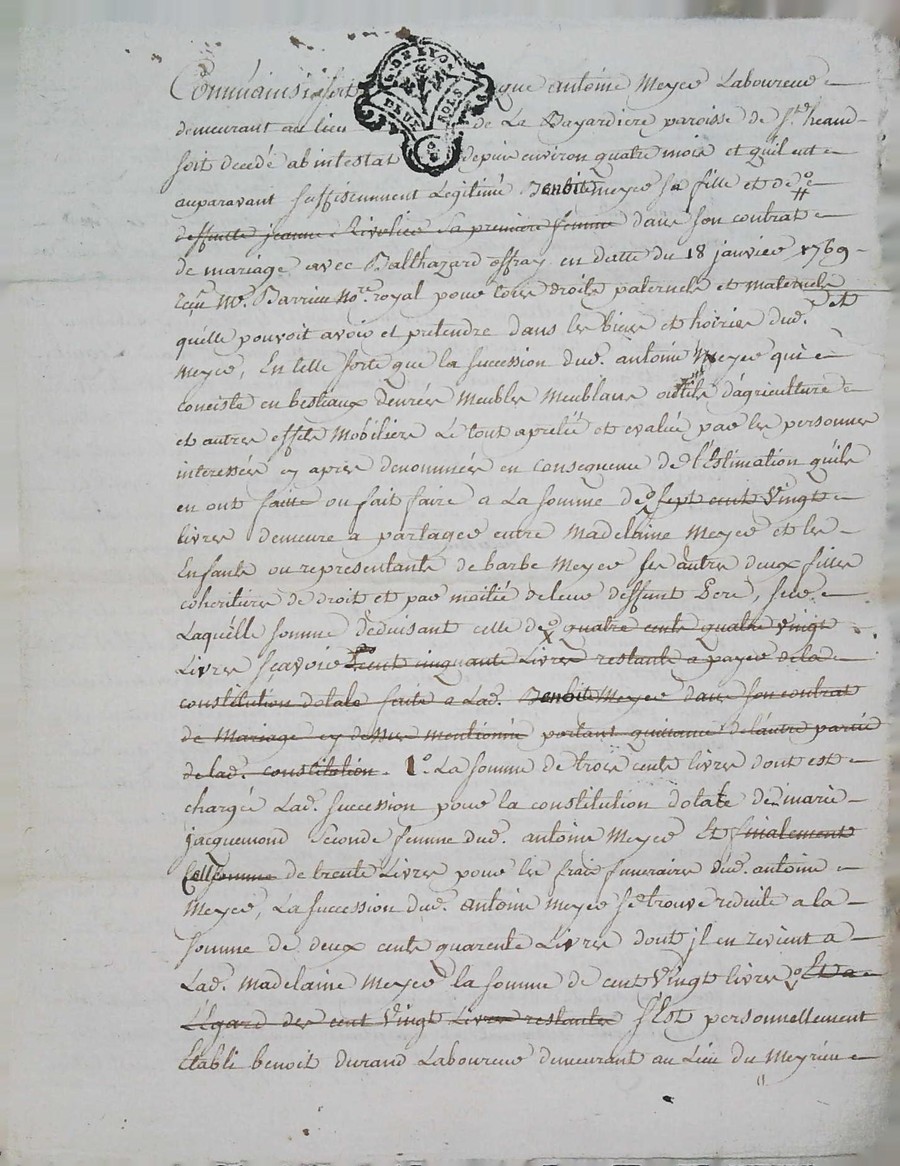 G. DE LYON
DEUX SOLS
Comme ainsi soit que antoine Meyer Laboureur
demeurant au lieu de La Bayardiere paroisse de St. heand
soit decedé abintestat depuis environ quatre mois et quil eut
auparavant suffisemment Legitimé Benoite meyer sa fille et de
deffunte jeanne Rivolier sa premiere femme dans son contrat
de mariage avec Balthazard offray en datte du 18 janvier 1769
reçu Me. Barrieu no.re royal pour tous droits paternels et maternels
quelle pouvoit avoir et pretendre dans les biens et hoiries dud. et
meyer, En telle sorte que la succession dud. antoine Meyer qui
consiste en bestiaux denrées meubles meublans outils d'agriculture
et autres effets mobiliers Le tout apretié et evalué par les personnes
interessées cy après denommées en consequence de l'Estimation quils
en ont faitte ou fait faire a La somme de sept cent vingt
livres demeure a partager entre Madelaine Meyer et les
Enfants ou representants de barbe Meyer ses autres deux filles
coheritieres de droit et par moitié de leur deffunt Pere, sur
Laquelle somme deduisant celle de quatre cents quatre vingt
Livres sçavoir cent cinquante Livres restants a payer de la
constitution dotale faite a Lad. Benoite Meyer dans son contrat
de Mariage cy dessus mentionné portant quittance de l'autre partie
de lad. constitution. 1o. La somme de trois cents livres dont est
chargée Lad. succession pour la constitution dotale de marie
jacquemond seconde femme dud. antoine Meyer Et finalement
Celle somme de trente Livres pour les frais funeraires dud. antoine
Meyer, La succession dud. antoine meyer se trouve reduite a la
somme de deux cents quarente Livres dont jl en revient a
Lad. Madelaine Meyer la somme de cent vingt livres Et a
L'égard des cent vingt Livres restantes s'Est personnellement
Etabli benoit durand Laboureur demeurant au Lieu du Meyrieu